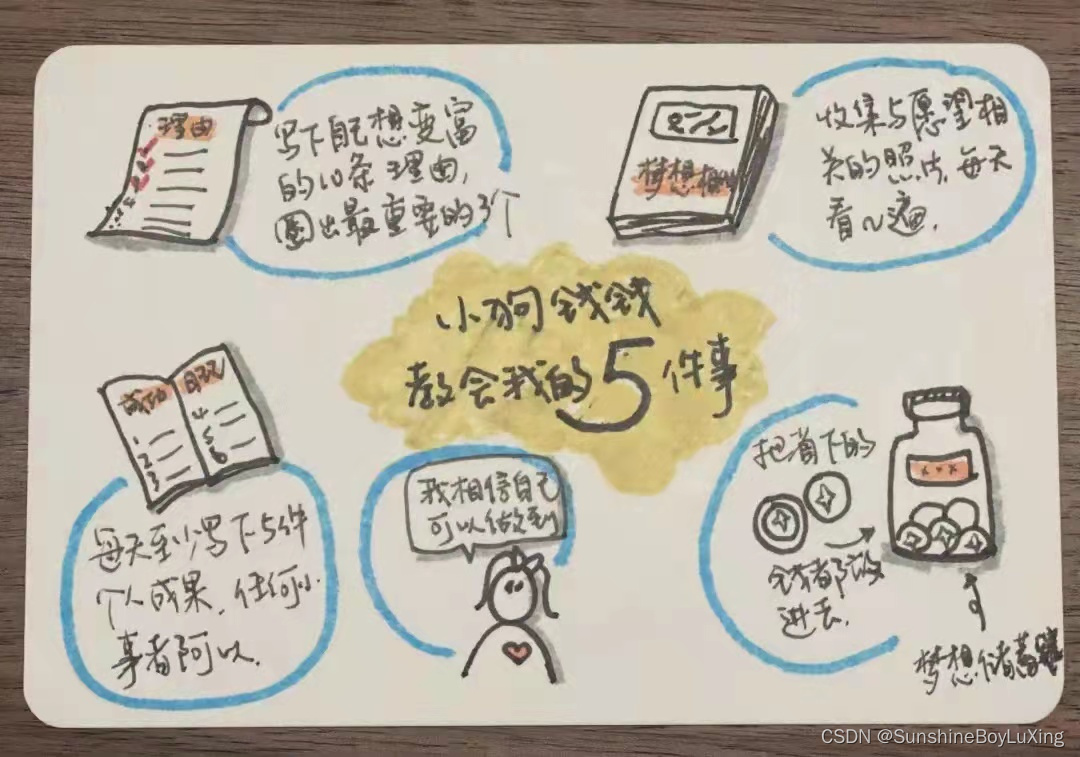 理由
写下自己想变富
的10条理由,
圈出最重要的3个
梦想相
收集与愿望相
关的照片,每天
看几遍.
小狗钱钱
教会我的5件事
成功日记
1
2
3
4
5
6
每天至少写下5件
个人成果,任何小
事都可以.
我相信自己
可以做到
把省下的
钱都放
进去.
梦想储蓄罐
CSDN @SunshineBoyLuXing